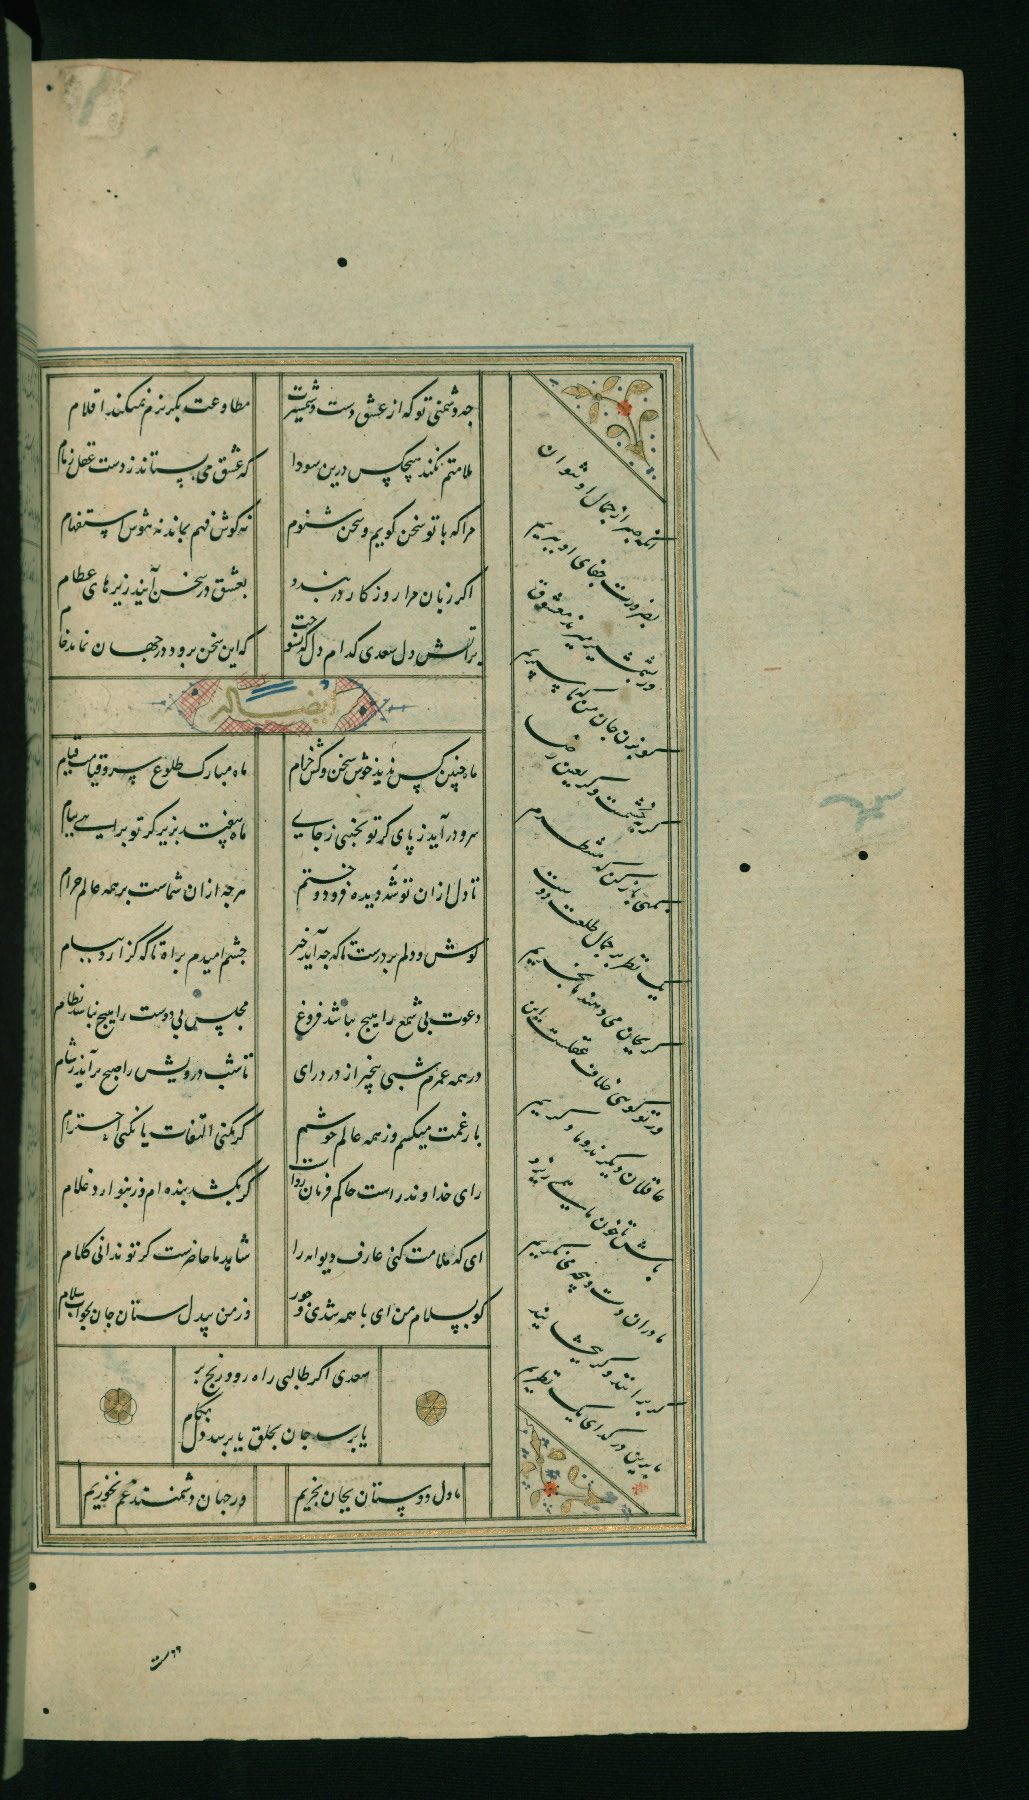 چه دشمنی تو که از عشق دست و شمشیرت
مطاوعت بگریزم نمیکند اقدام
ملامتم نکند هیچکس درین سودا
که عشق می بستاند ز دست عقل زمام
مرا که با تو سخن کویم و سخن شنوم
نه کوش فهم بماند نه هوش استفهام
اکر زبان مرا روزکار دربندد
بعشق در سخن آیند زیرهای عظام
بر آتش دل سعدی کدام دل که نسوخت
که این سخن برود در جهان نماند خام
ایضا له
ماه چنین کس ندید خوش سخن و کش خرام
ماه مبارک طلوع سرو قیامت قیام
سرو درآید ز پای کر تو بجنبی ز جای
ماه بیفتد بزیر کر تو برآیی ببام
تا دل از ان تو شد دیده فرو دوختم
هرچه از ان شماست بر همه عالم حرام
کوش و دلم بر درست تا که چه آید خبر
چشم امیدم براه تا که کزارد پیام
دعوت بی شمع را هیچ نباشد فروغ
مجلس بی دوست را هیچ نباشد نظام
در همه عمرم شبی بیخبر از در درآی
تا شب درویش را صبح برآید ز شام
بار غمت میکشم وز همه عالم خوشم
کر نکنی التفات یا نکنی احترام
رای خداوند راست حاکم فرمان رواست
کر بکشد بنده ام ور بنوازد غلام
ای که ملامت کنی عارف دیوانه را
شاهد ما حاضرست کر تو ندانی کلام
کو بسلام من ای با همه تندی و جور
وز من بیدل ستان جان بجواب سلام
سعدی اکر طالبی راه رو و رنج بر
یا برسد جان بحلق یا برسد دل بکام
ما دل دوستان بجان بخریم
ور جهان دشمنند غم نخوریم
انکه صبر از جمال او نتوان
بضرورت جفای او ببریم
ور بشمشیر میزند معشوق
کو بزن جان من که ما سپریم
یک نظر بر جمال طلعت دوست
کر بجان می دهند ما بخریم
ور تو کویی خلاف عقلست این
عاقلان دیکرند و ما دکریم
باش تا خون ما همی ریزد
ما در ان دست و پنجه می نکریم
کر برانند و کر ببخشایند
ما برین در کدای یک نظریم
دوست